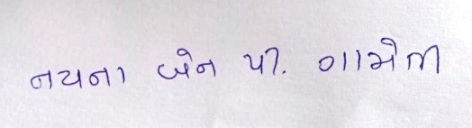 નયના બેન પી. ગામીત